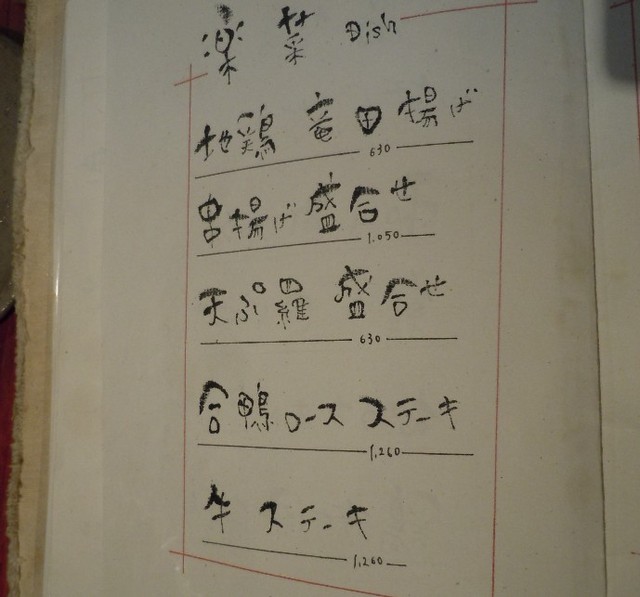 楽菜 Dish
地鶏 竜田揚げ
630
串揚げ盛合せ
1,050
天ぷ羅 盛合せ
630
合鴨ロース ステーキ
1,260
牛 ステーキ
1,260